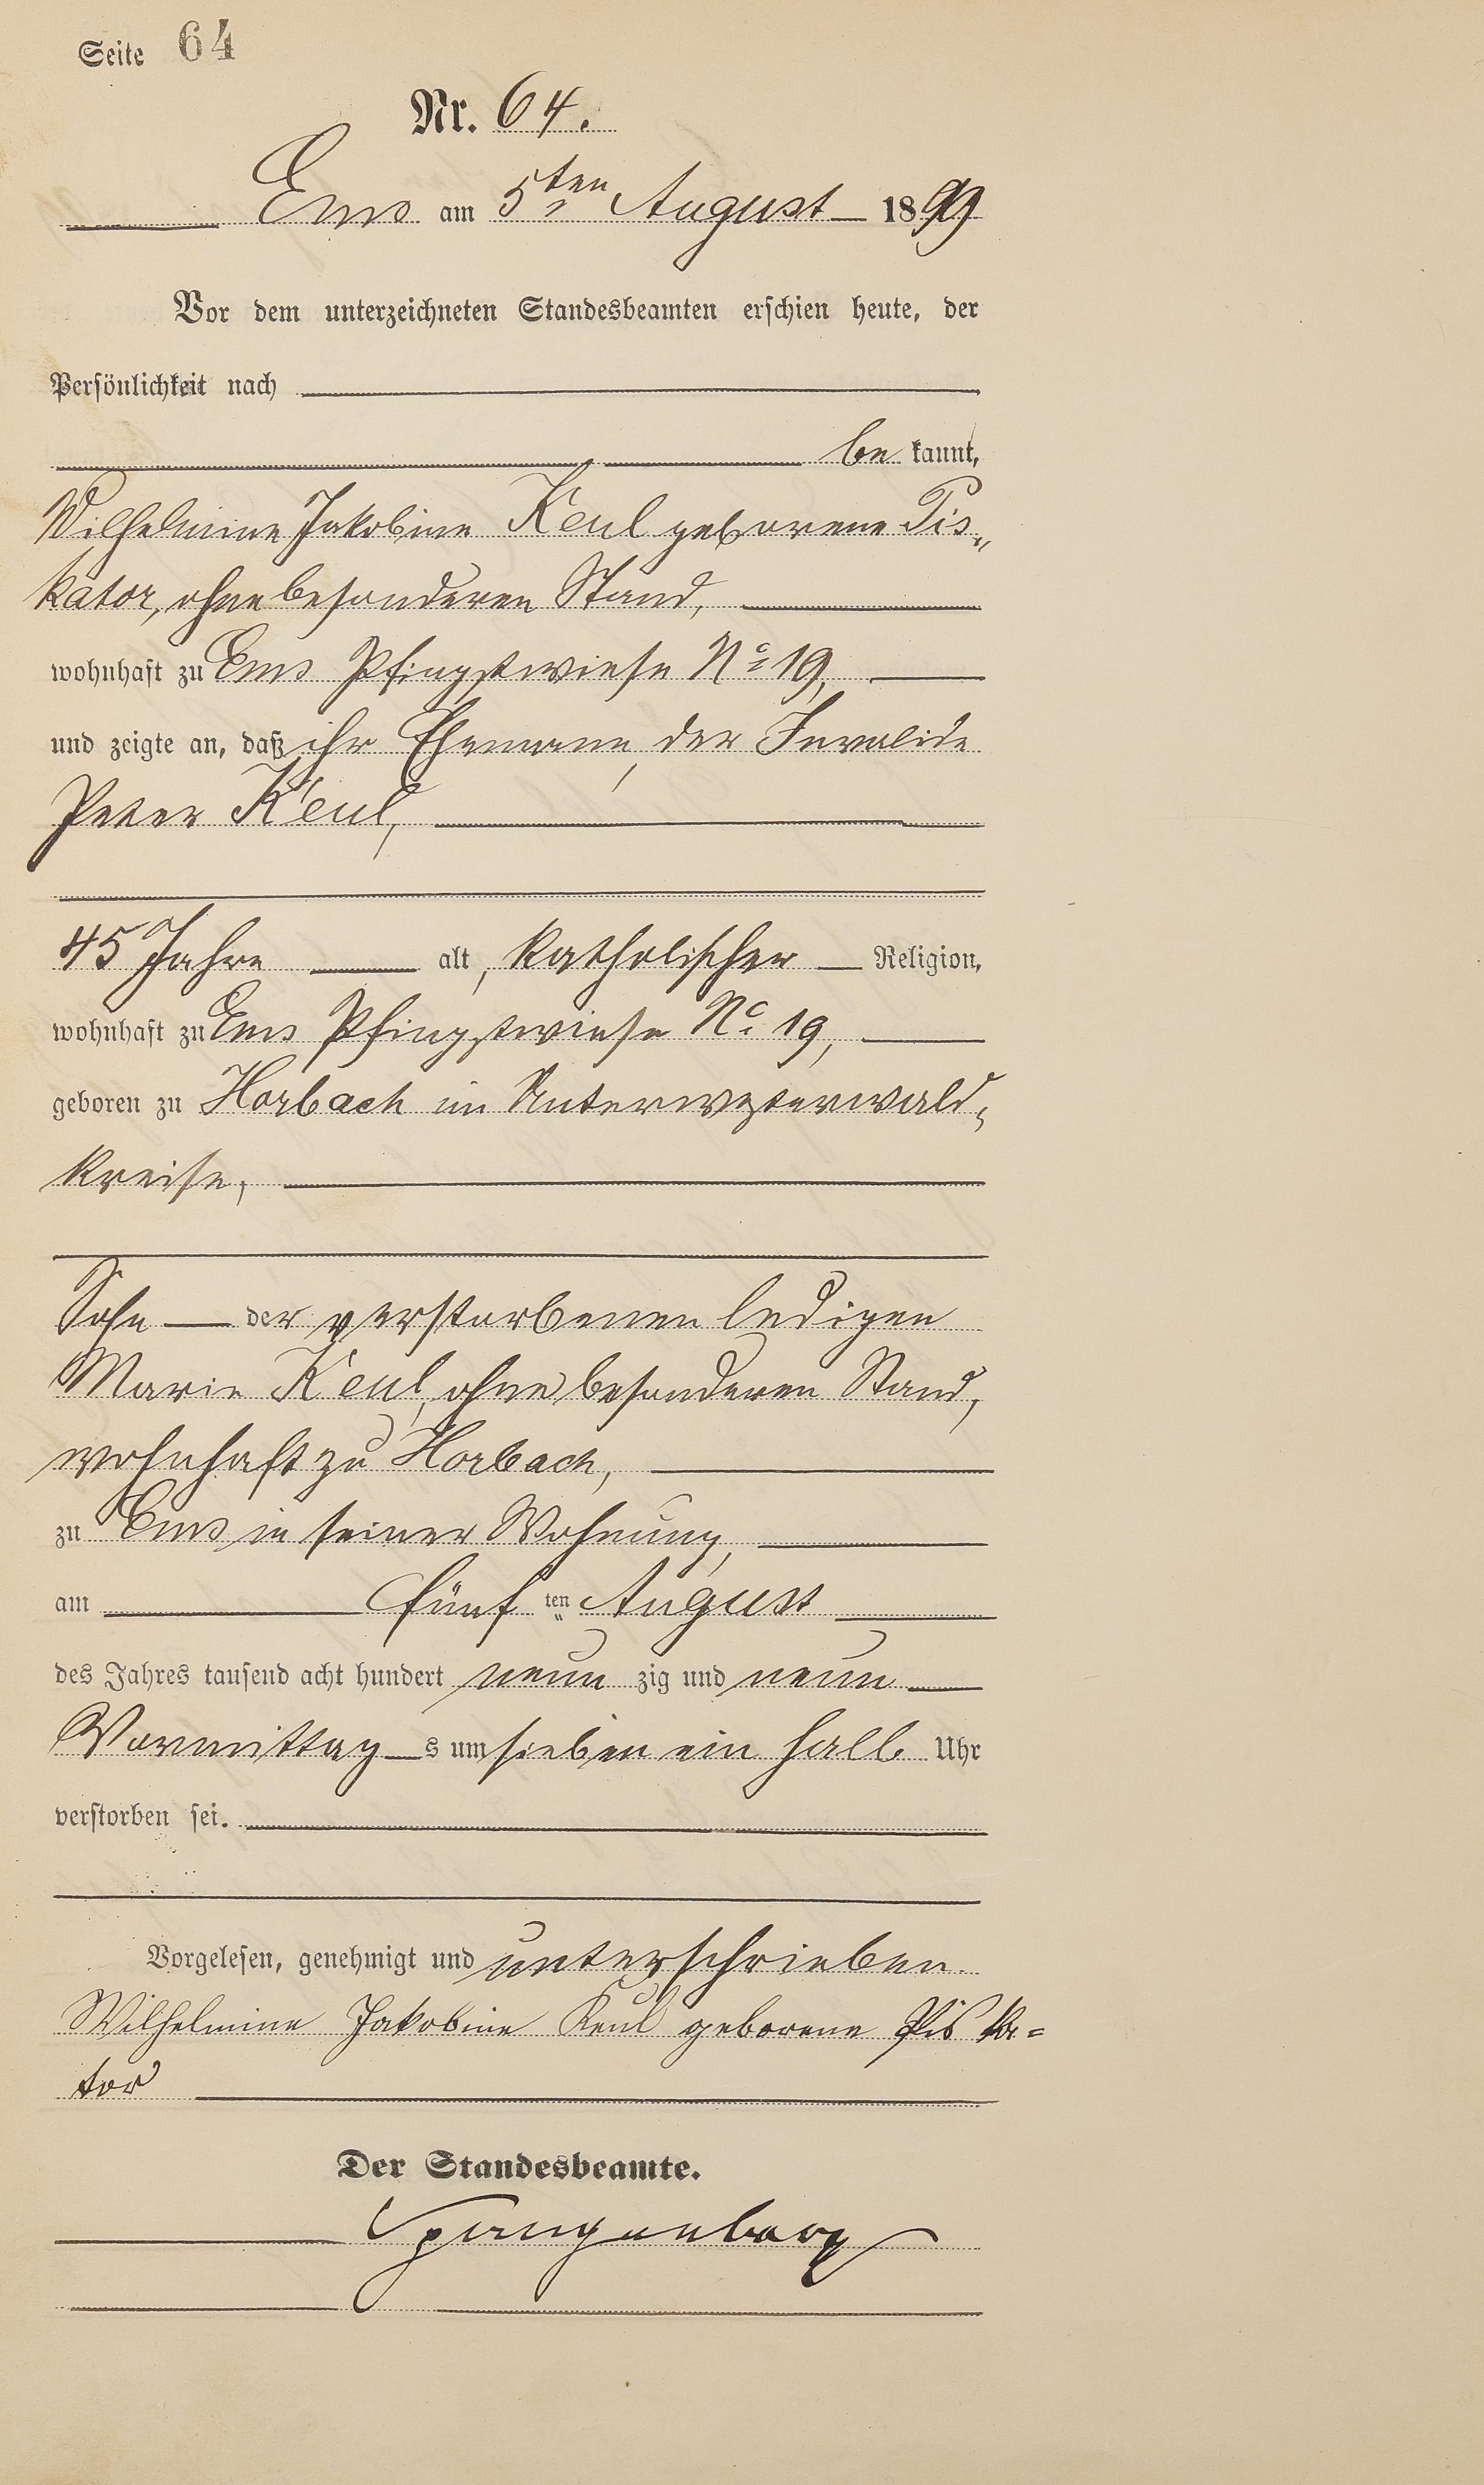 Seite 64
Nr. 64.
Ems am 5ten August 1899
Vor dem unterzeichneten Standesbeamten erschien heute, der
Persönlichkeit nach
be kannt,
Wilhelmine Jakobine Keul geborene Pis„
kator, ohne besonderen Stand,
wohnhaft zu Ems Pfingstwiese No 19,
und zeigte an, daß ihr Ehemann, der Invalide
Peter Keul,
45 Jahre alt, katholischer Religion,
wohnhaft zu Ems Pfingstwiese No 19,
geboren zu Horbach im Unterwesterwald„
kreise,
Sohn der verstorbenen ledigen
Marie Keul, ohne besonderen Stand,
wohnhaft zu Horbach,
zu Ems in seiner Wohnung,
am fünf ten August
des Jahres tausend acht hundert neun zig und neun
Vormittag s um sieben ein halb Uhr
verstorben sei.
Vorgelesen, genehmigt und unterschrieben.
Wilhelmine Jakobine Keul geborene Pis ka=
tor
Der Standesbeamte.
Spangenberg